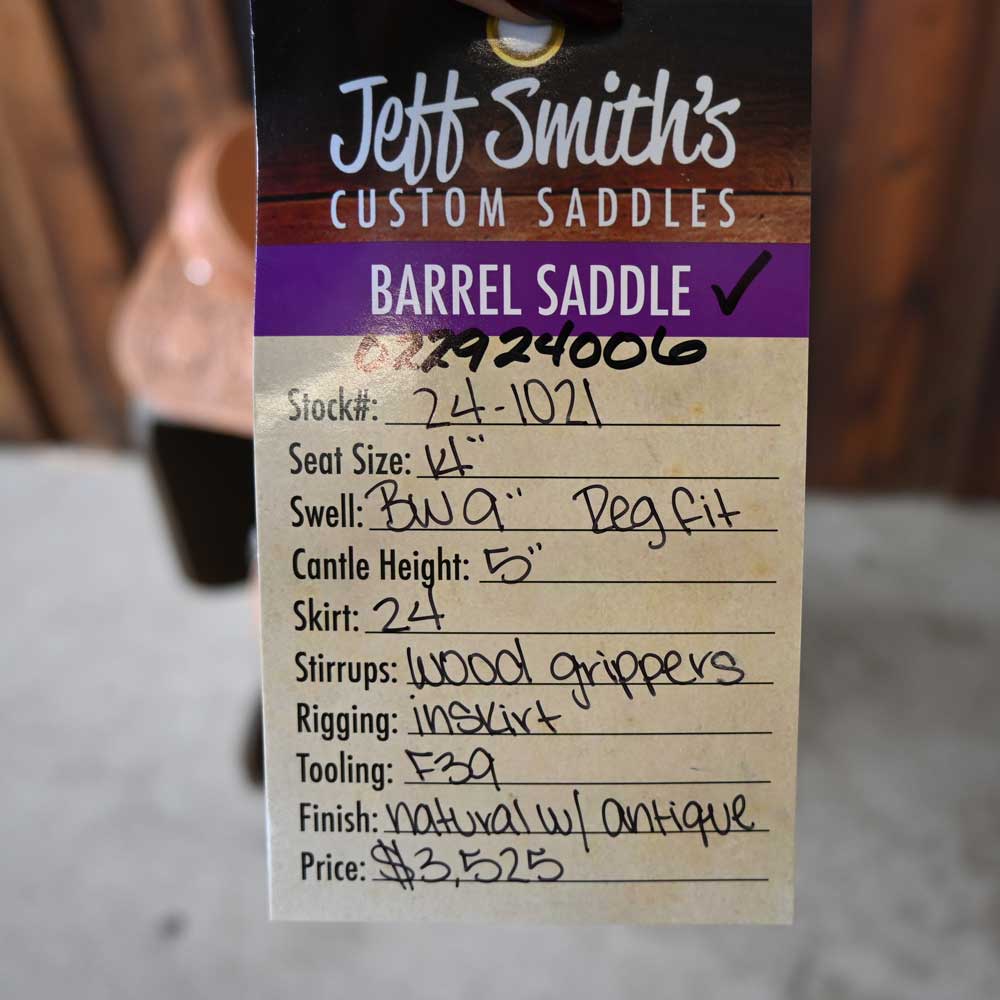 Jeff Smith's
CUSTOM SADDLES
BARREL SADDLE ✓
022924006
Stock#: 24-1021
Seat Size: 14"
Swell: BW 9" Reg fit
Cantle Height: 5"
Skirt: 24
Stirrups: wood grippers
Rigging: inskirt
Tooling: F39
Finish: natural w/ antique
Price: $3,525